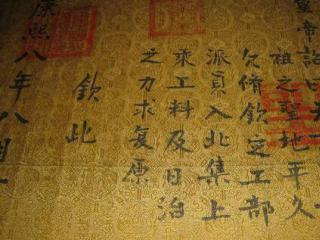 皇帝詔曰天
祖之聖地年久
欠脩欽定工部
派員入北集上
乘工料及日治
之力求复原
欽此
康熙八年八月